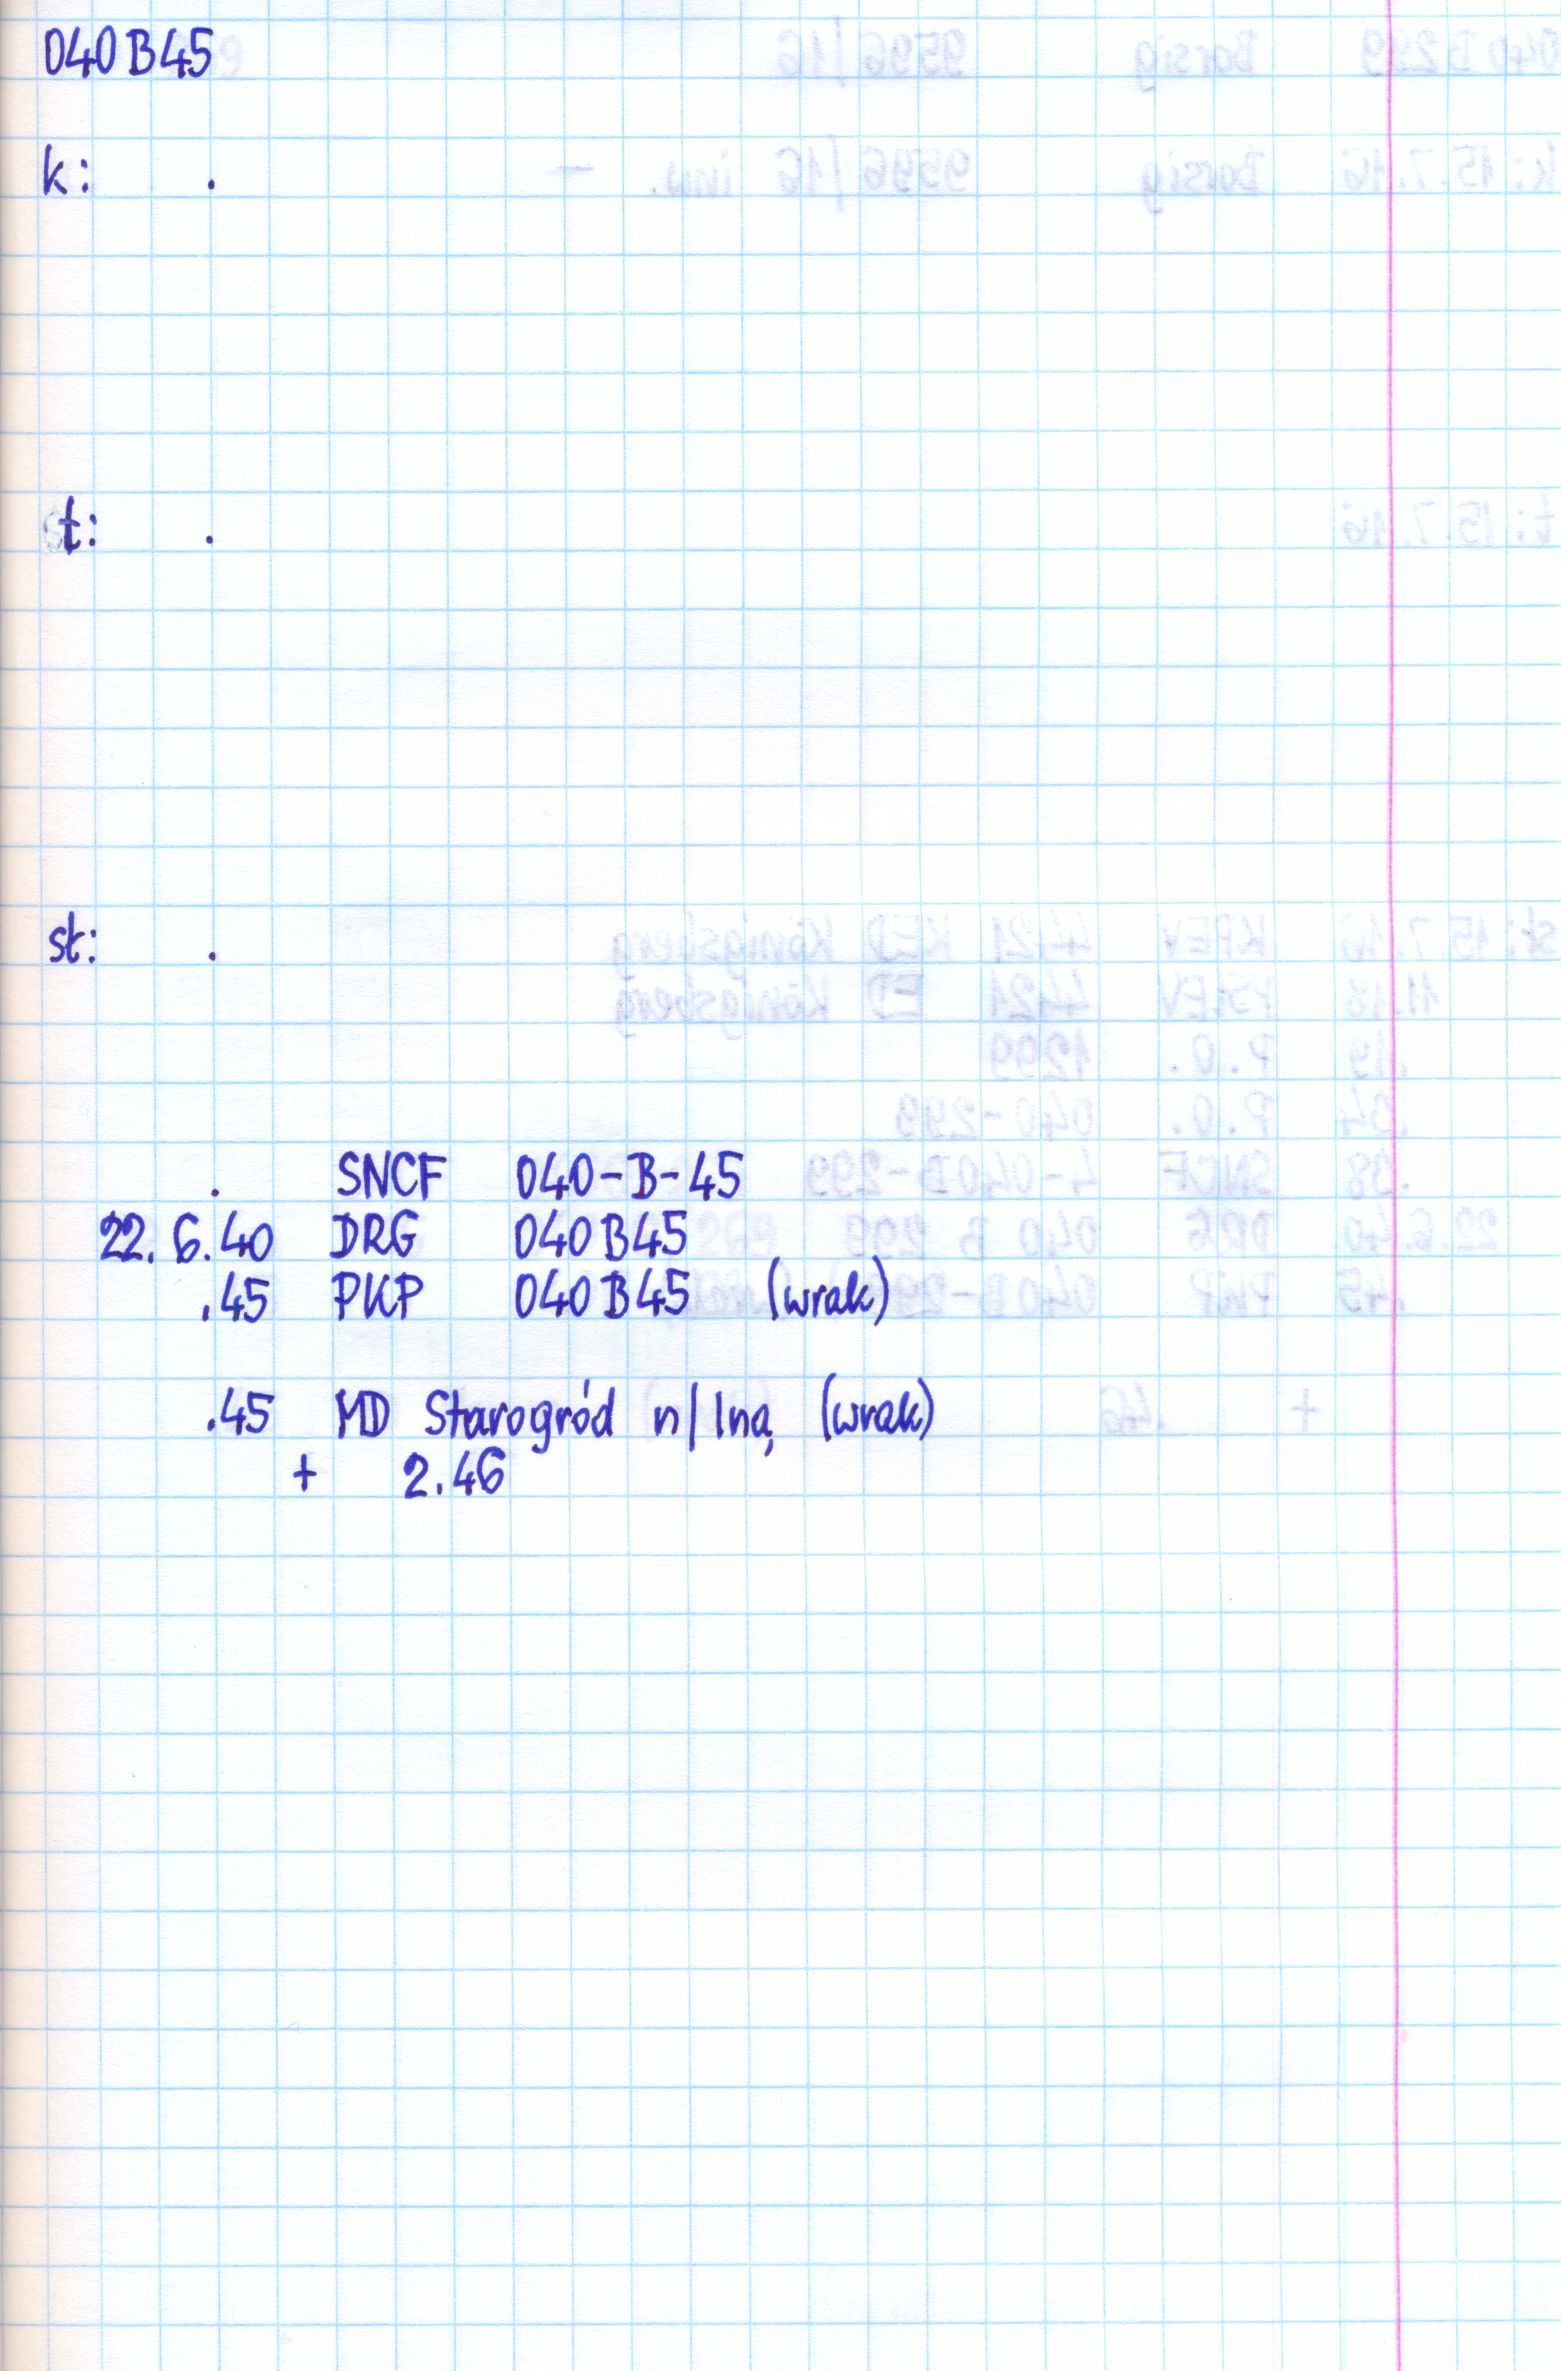 040B45
k: .
t: .
st: .
. SNCF 040-B-45
22.6.40 DRG 040B45
.45 PKP 040B45 (wrak)
.45 MD Starogród n/Iną (wrak)
+ 2.46